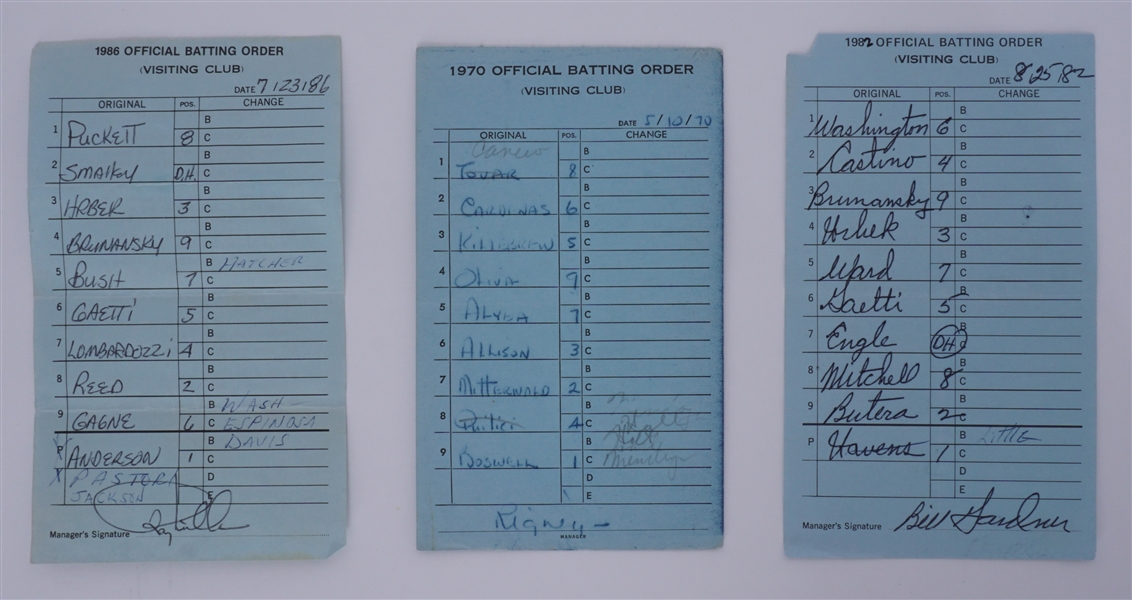 1986 OFFICIAL BATTING ORDER
(VISITING CLUB)
DATE 7/23/86
ORIGINAL POS. CHANGE
B
1 PUCKETT 8 C
B
2 SMALLEY D.H. C
B
3 HRBEK 3 C
B
4 BRUNANSKY 9 C
B HATCHER
5 BUSH 7 C
B
6 GAETTI 5 C
B
7 LOMBARDOZZI 4 C
B
8 REED 2 C
B WASH
9 GAGNE 6 C ESPINOSA
P B DAVIS
ANDERSON 1 C
X PASTORE D
JACKSON E
Manager's Signature
1970 OFFICIAL BATTING ORDER
(VISITING CLUB)
DATE 5/10/70
ORIGINAL POS. CHANGE
Carew B
1 TOVAR 8 C
B
2 CARDENAS 6 C
B
3 KILLEBREW 5 C
B
4 OLIVA 9 C
B
5 ALYEA 7 C
B
6 ALLISON 3 C
B
7 MITTERWALD 2 C
B
8 4 C
B
9 BOSWELL 1 C
D
E
Rigney
MANAGER
1982 OFFICIAL BATTING ORDER
(VISITING CLUB)
DATE 8/25/82
ORIGINAL POS. CHANGE
B
1 Washington 6 C
B
2 Castino 4 C
B
3 Brunansky 9 C
B
4 Hrbek 3 C
B
5 Ward 7 C
B
6 Gaetti 5 C
B
7 Engle DH C
B
8 Mitchell 8 C
B
9 Butera 2 C
P B Little
Havens 1 C
D
E
Manager's Signature Bill Gardner